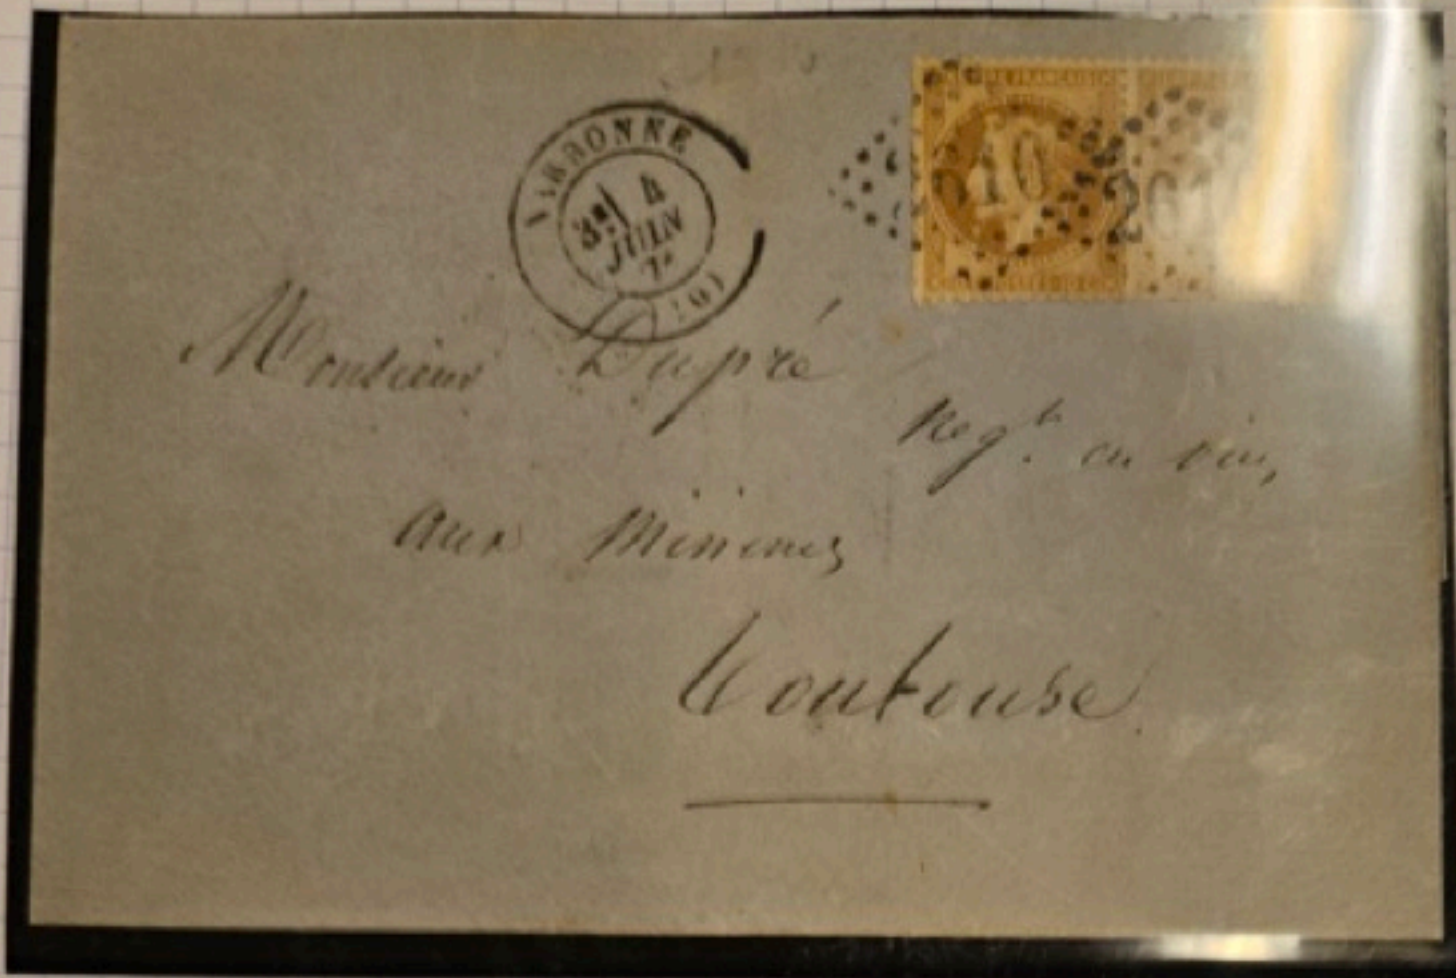 NARBONNE
3E
4
JUIN
7
(10)
610
261
Monsieur Dupré
Negt. en vins
aux Minimes
Toulouse